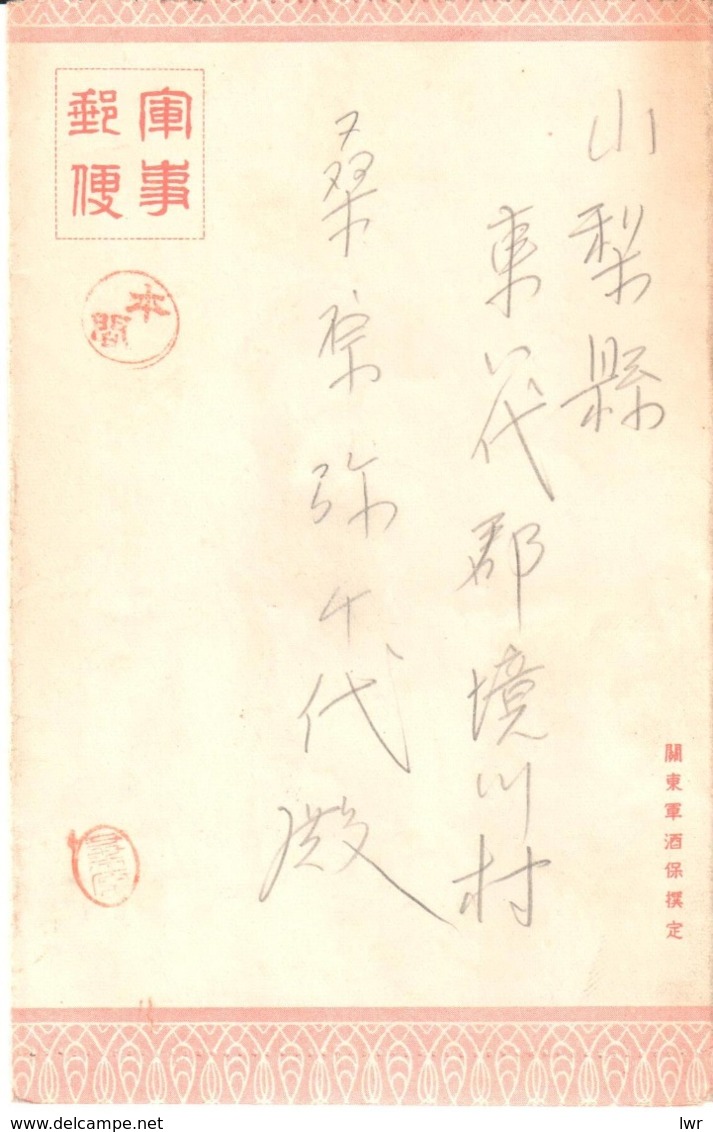 山梨縣
東八代郡境川村
桑原弥千代殿
軍事
郵便
本間
關東軍酒保撰定
www.delcampe.net
lwr